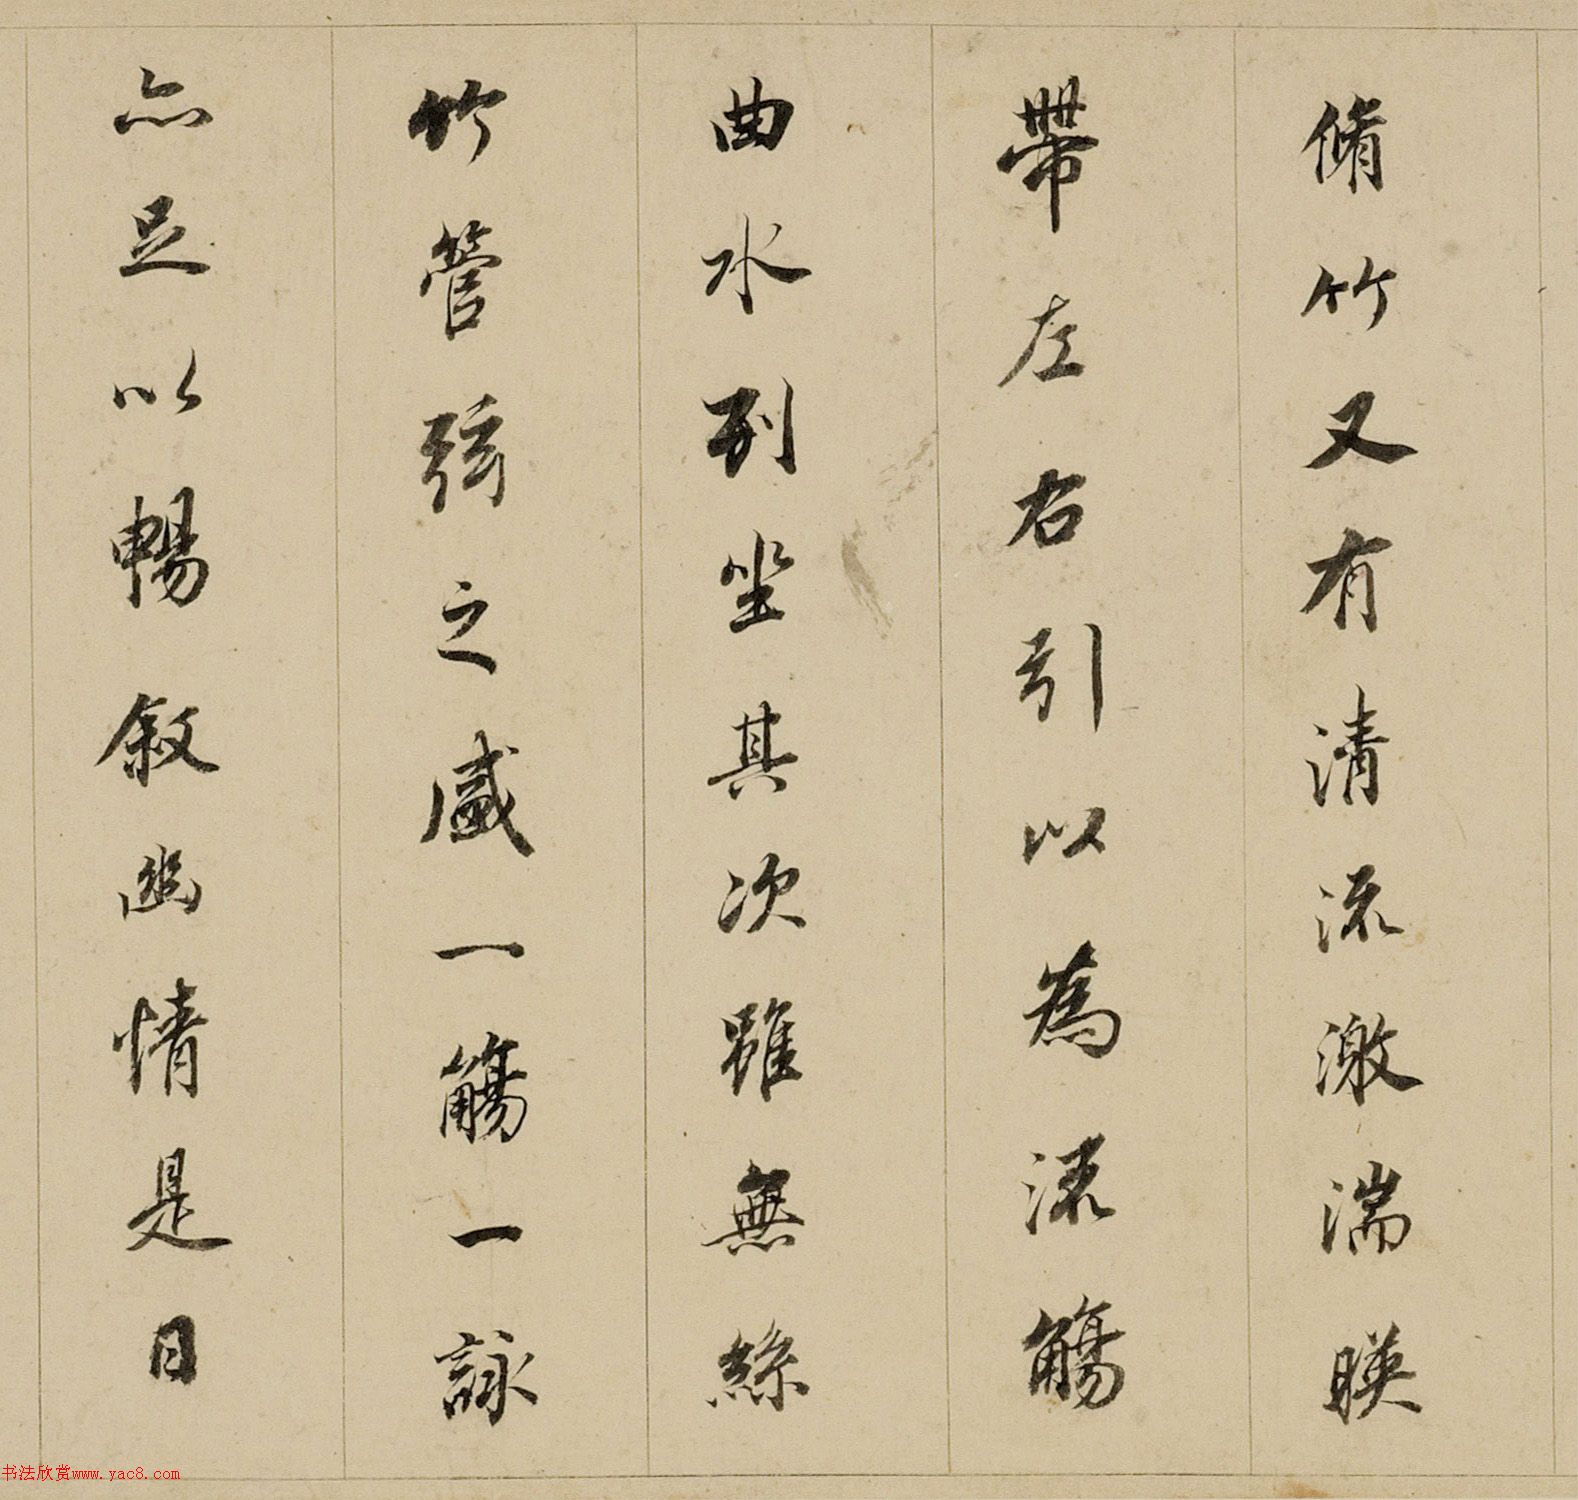 脩竹又有清流激湍暎
帶左右引以為流觴
曲水列坐其次雖無絲
竹管弦之盛一觴一詠
亦足以暢敘幽情是日
书法欣赏www.yac8.com